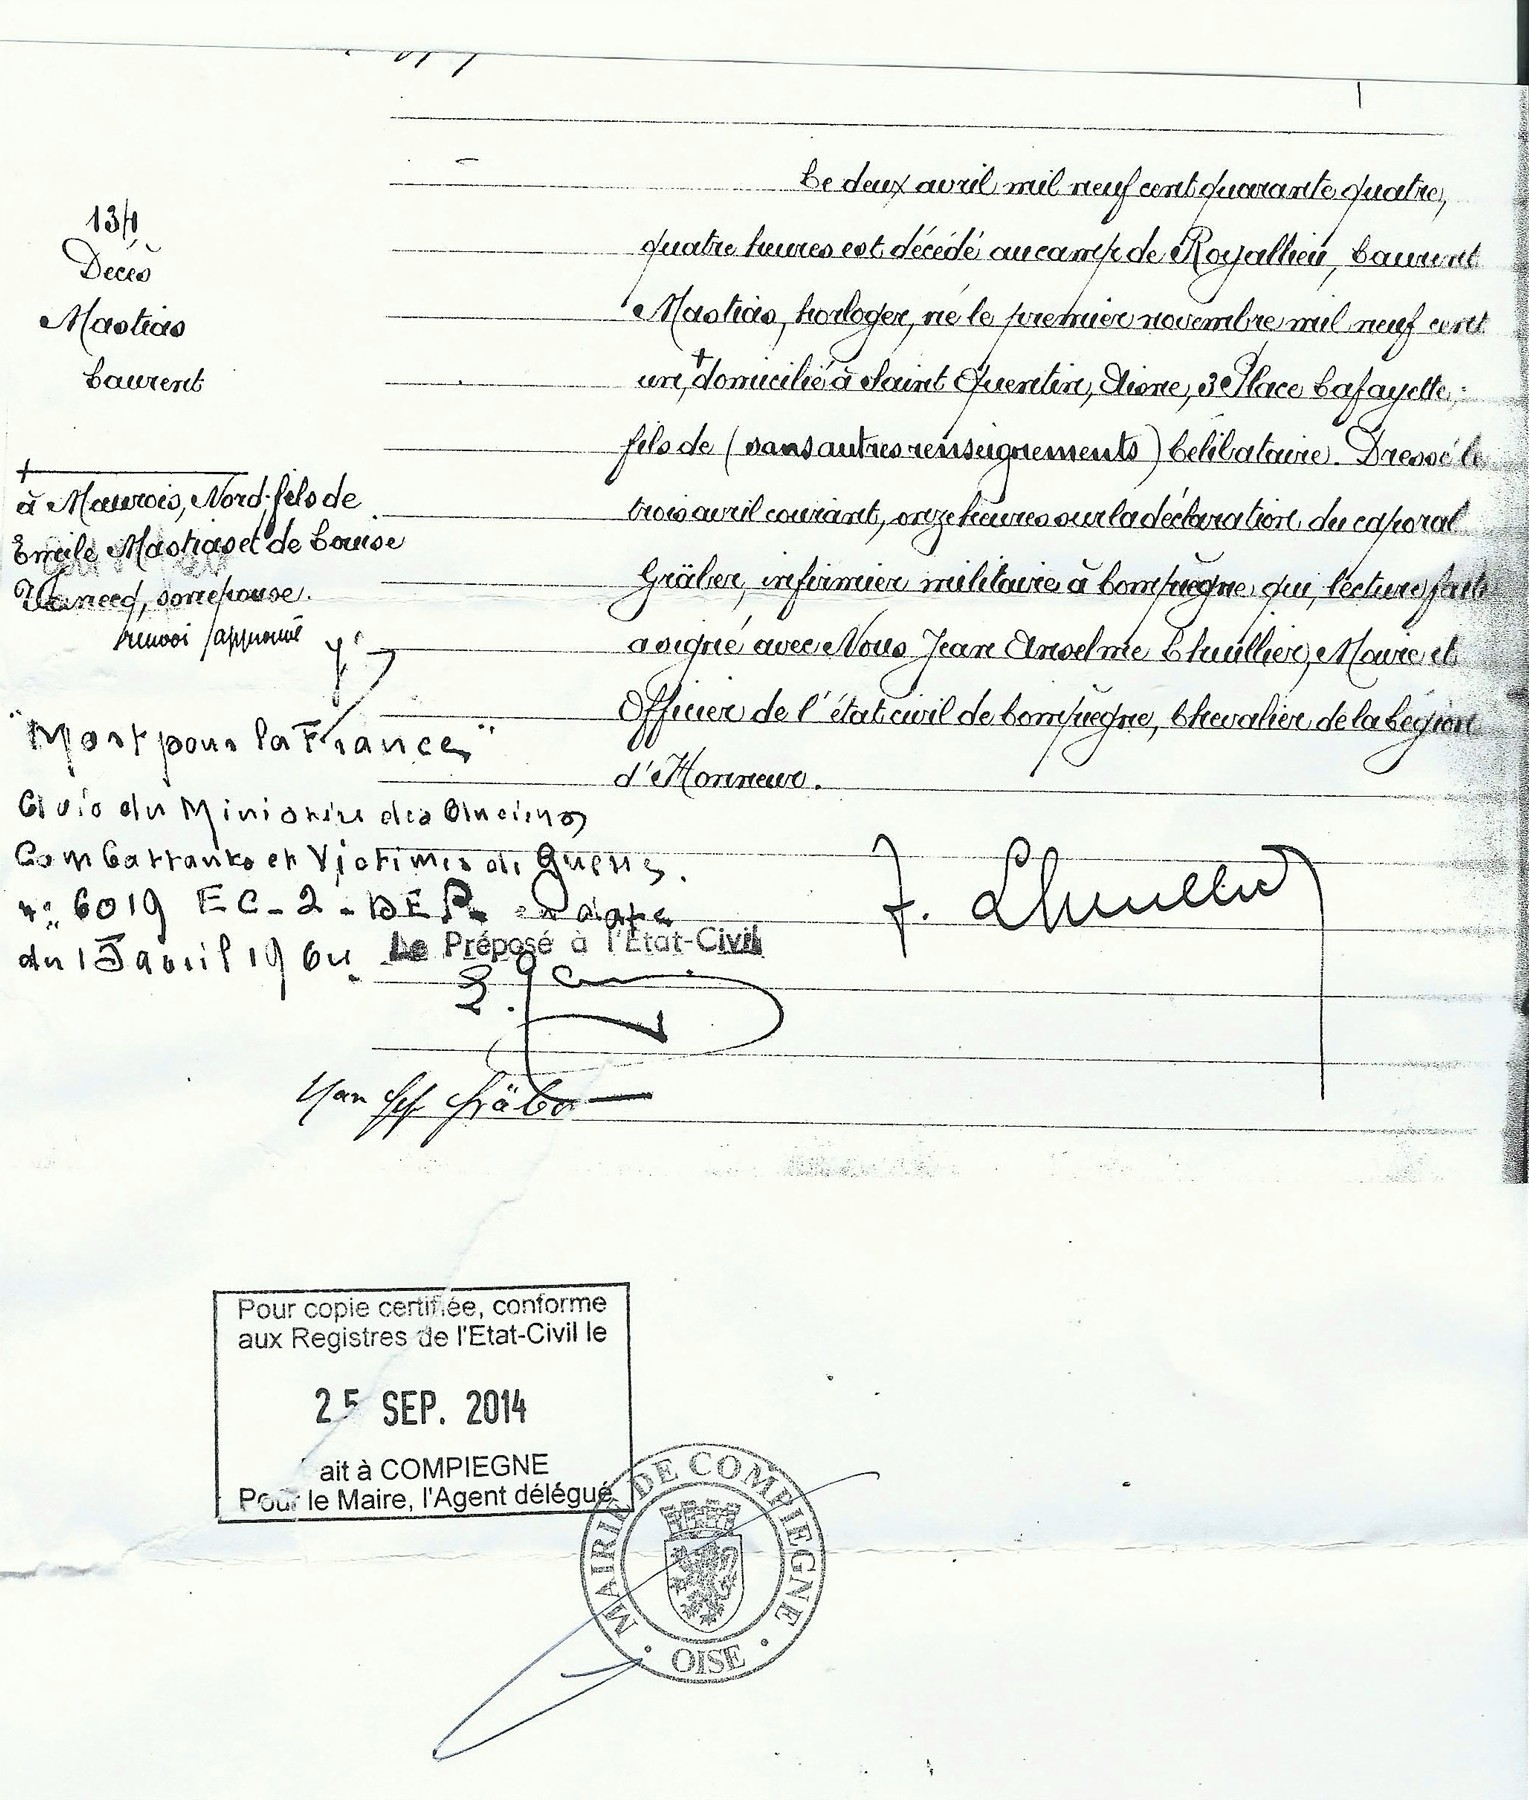 134
Décès
Mastias
Laurent
Le deux avril mil neuf cent quarante quatre,
quatre heures est décédé au camp de Royallieu, Laurent
Mastias, horloger, né le premier novembre mil neuf cent
un, + domicilié à Saint Quentin, Aisne, 3 Place Lafayette;
fils de (sans autres renseignements) Célibataire. Dressé le
trois avril courant, onze heures sur la déclaration du caporal
Gräber, infirmier militaire à Compiègne qui, lecture faite
a signé avec Nous Jean Anselme Lhuillier, Maire et
Officier de l'état civil de Compiègne, Chevalier de la Légion
d'Honneur.
+
à Maurois, Nord, fils de
Emile Mastias et de Louise
son épouse.
renvoi approuvé
"Mort pour la France"
Avis du Ministère des Anciens
Combattants et Victimes de Guerre.
n° 6019 EC-2-DEP. en date
du 15 avril 1964
Le Préposé à l'Etat-Civil
J. Lhuillier
Gräber
Pour copie certifiée, conforme
aux Registres de l'Etat-Civil le
25 SEP. 2014
ait à COMPIEGNE
Pour le Maire, l'Agent délégué
MAIRIE DE COMPIEGNE
OISE